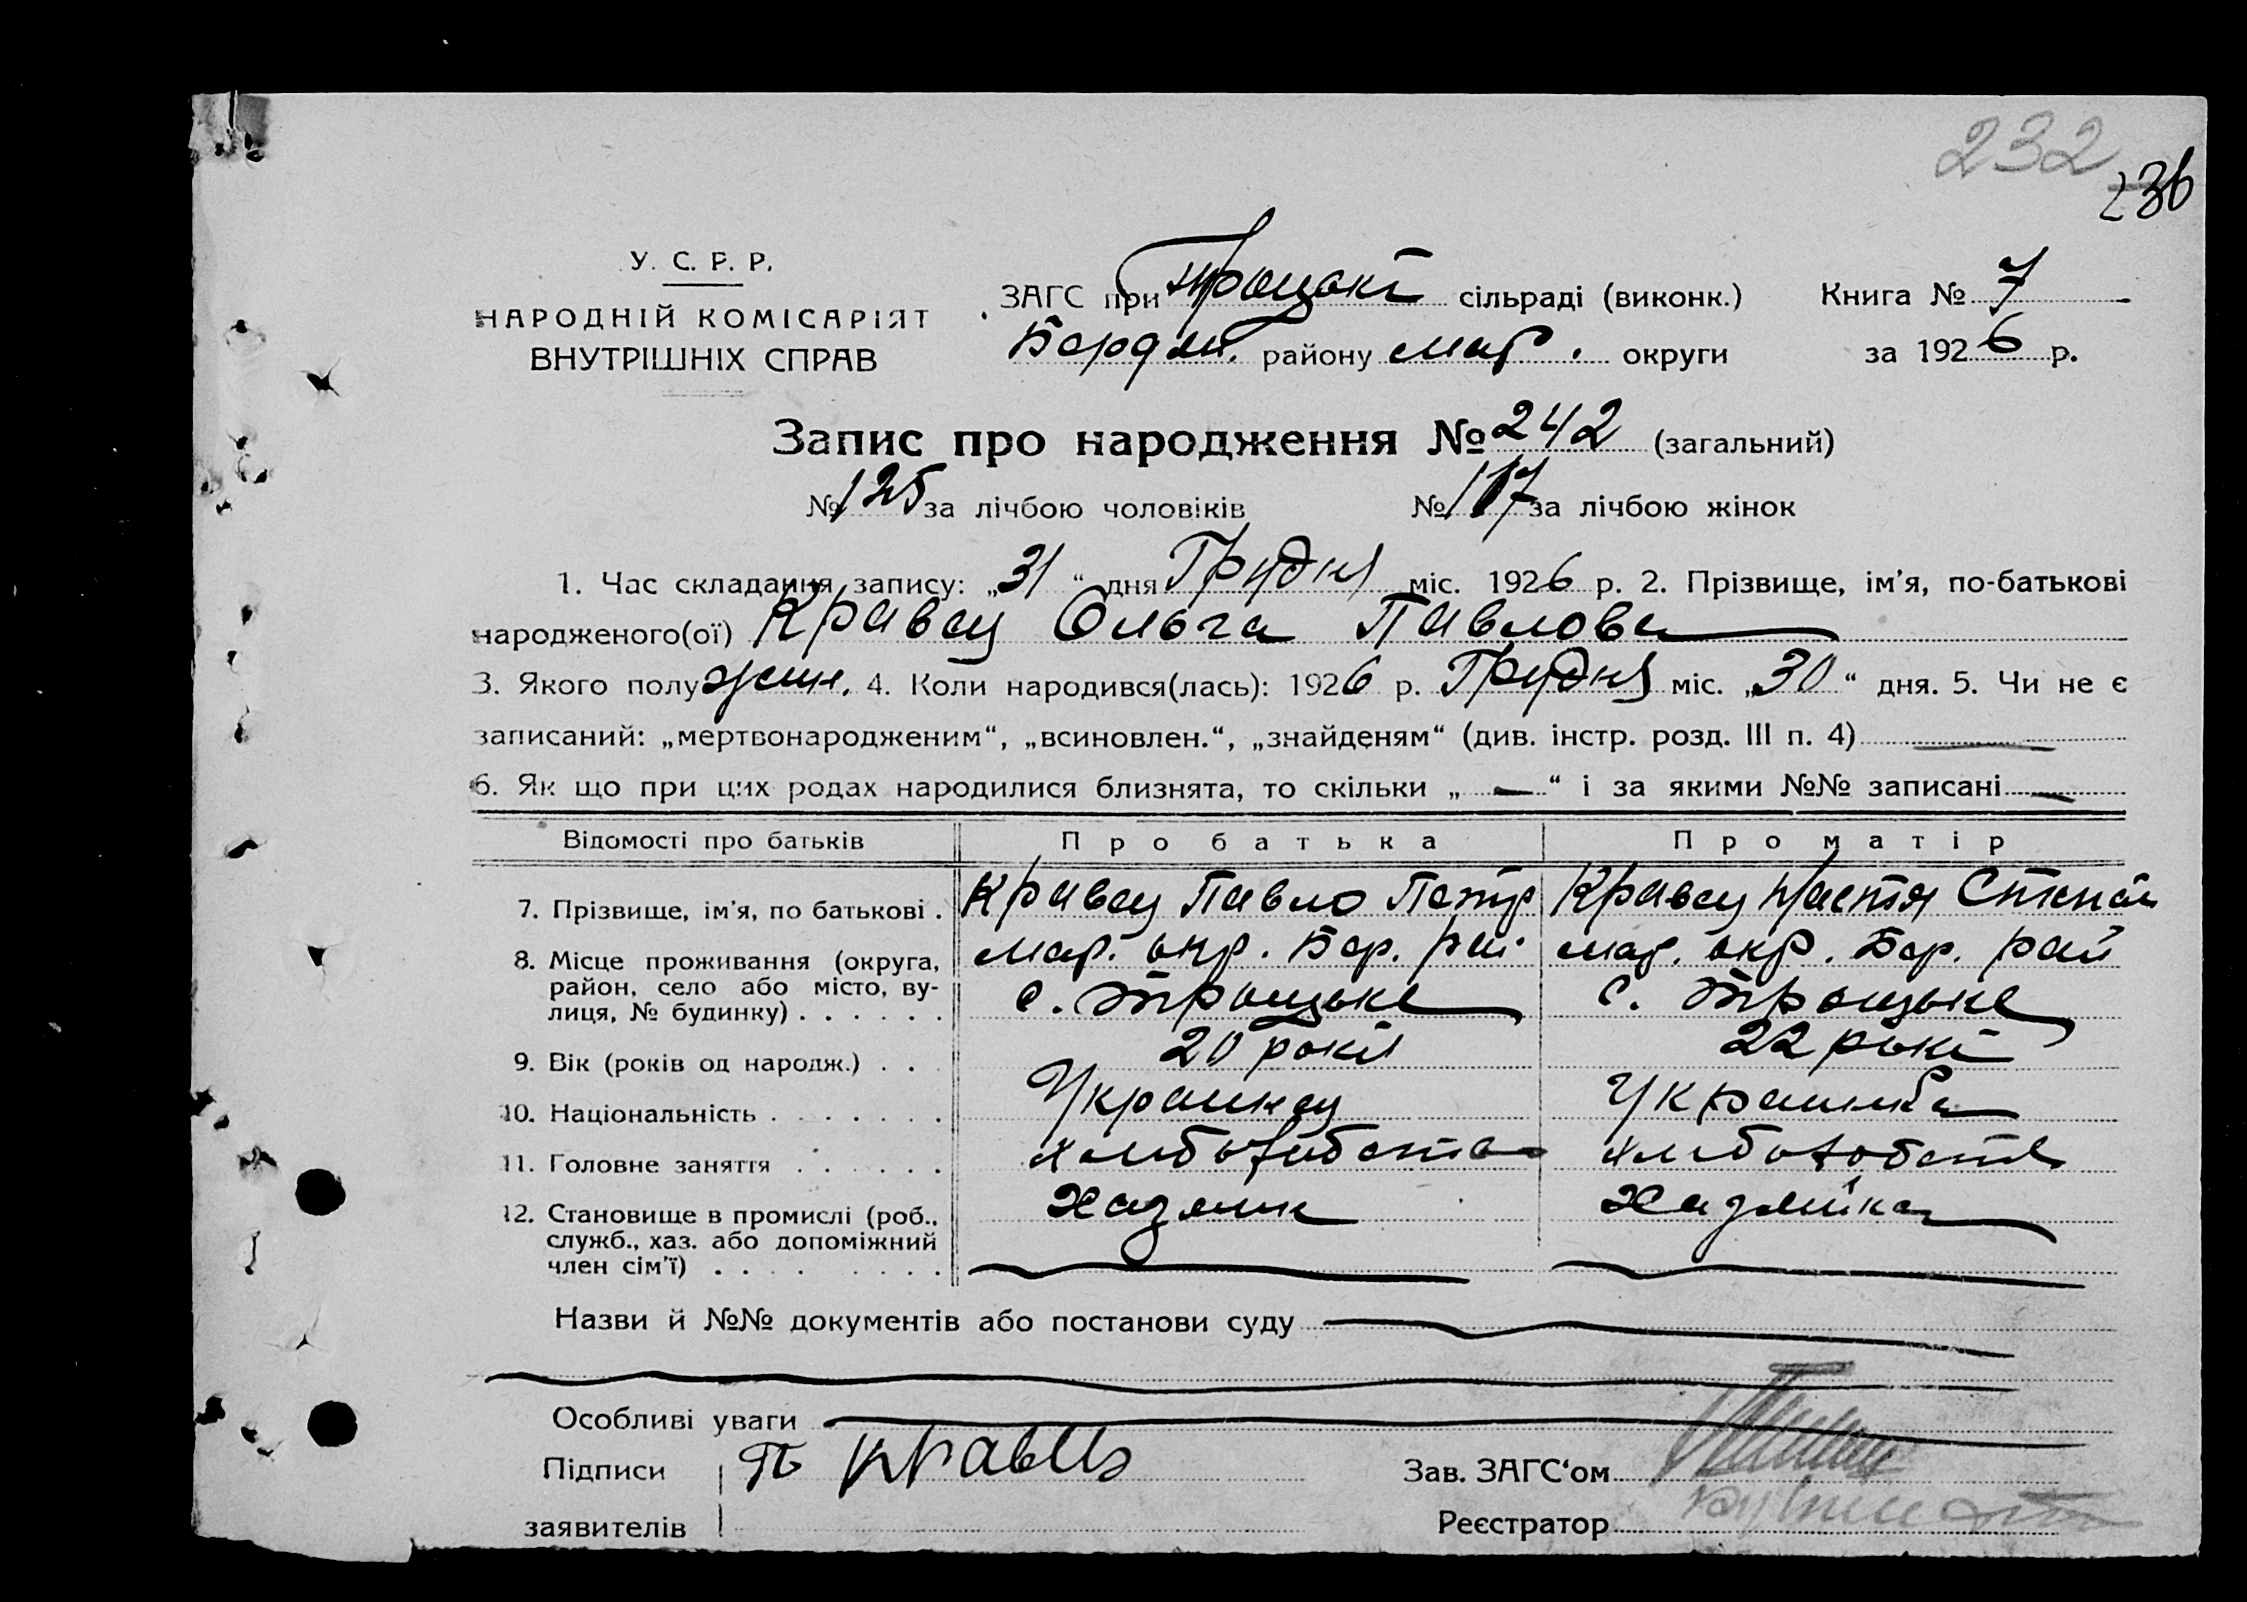 232
236
У. С. Р. Р.
НАРОДНІЙ КОМІСАРІЯТ
ВНУТРІШНІХ СПРАВ
ЗАГС при Троцькі сільраді (виконк.) Книга № 7
Бердян. району Мар. округи за 1926 р.
Запис про народження № 242 (загальний)
№ 125 за лічбою чоловіків № 117 за лічбою жінок
1. Час складання запису: „31“ дня Грудня міс. 1926 р. 2. Прізвище, ім'я, по-батькові
народженого(ої) Кравец Ольга Павлова
3. Якого полу жин. 4. Коли народився(лась): 1926 р. Грудня міс. „30“ дня. 5. Чи не є
записаний: „мертвонародженим“, „всиновлен.“, „знайденям“ (див. інстр. розд. III п. 4) —
6. Як що при цих родах народилися близнята, то скільки „ — “ і за якими №№ записані —
Відомості про батьків Про батька Про матір
7. Прізвище, ім'я, по батькові . Кравец Павло Петр Кравец Настя Степан
8. Місце проживання (округа, Мар. окр. Бер. рай Мар. окр. Бер. рай
район, село або місто, ву- с. Троцьке с. Троцьке
лиця, № будинку) . . . . . .
9. Вік (років од народж.) . . 20 років 22 рокі
10. Національність . . . . . . . Украинец Украинка
11. Головне заняття . . . . . .
12. Становище в промислі (роб., Хазяин Хазяйка
служб., хаз. або допоміжний
член сім'ї) . . . . . . . .
Назви й №№ документів або постанови суду
Особливі уваги
Підписи П Кравец Зав. ЗАГС'ом
заявителів Реєстратор